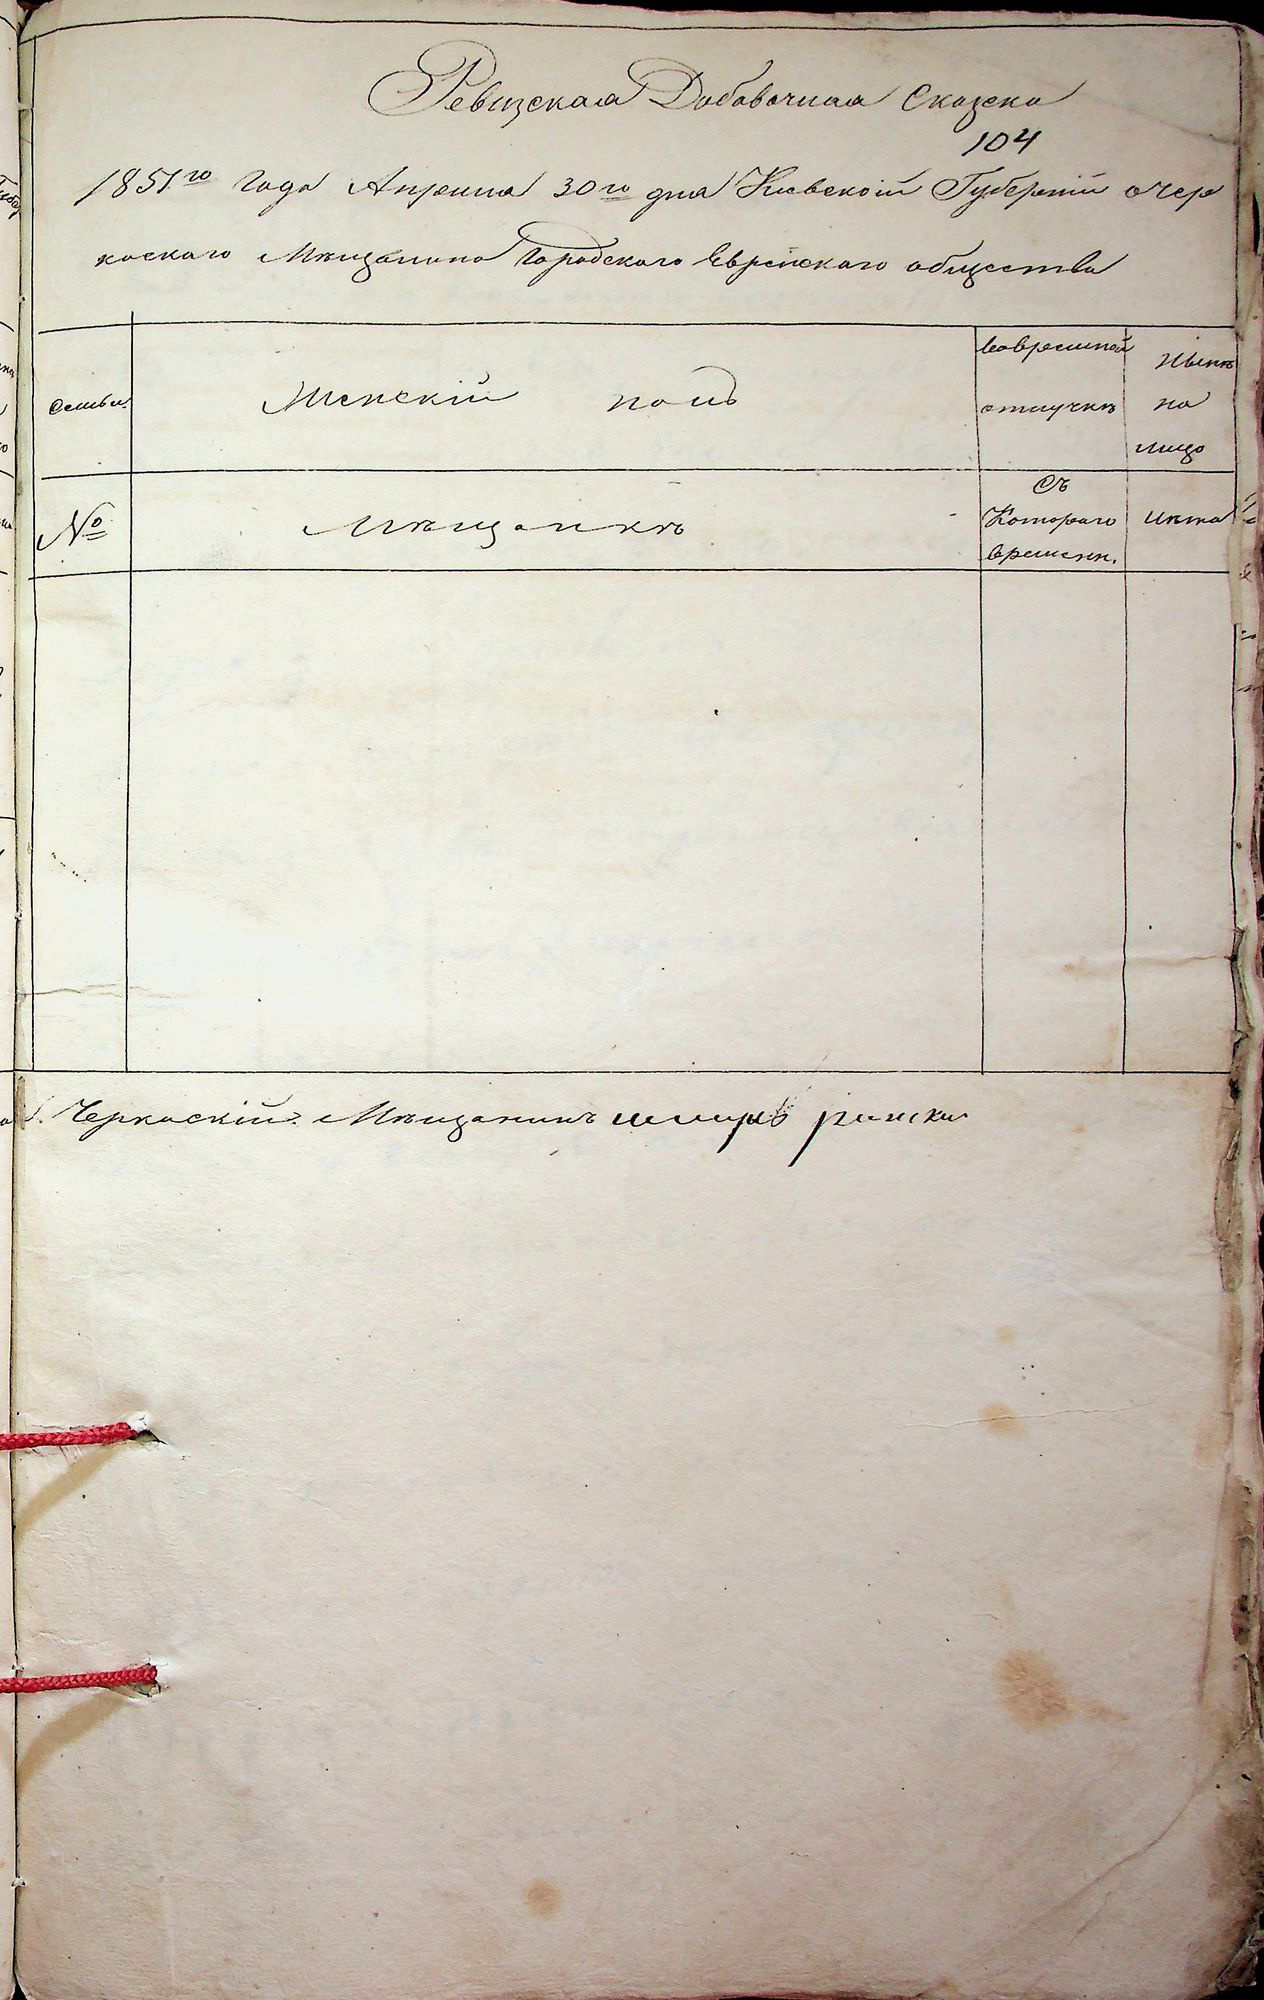 Ревизская Добавочная Сказка
104
1851го Года Апреля 30го дня Киевской Губерніи очер
каскаго Мѣщанина Городскаго Еврейскаго общества
Семьи.
Женскій полъ
Вовременной
отлучкѣ
Нынѣ
на
лицо
№
Мѣщанкѣ
Съ
Котораго
времени.
Лѣта
Черкаскій Мѣщанинъ